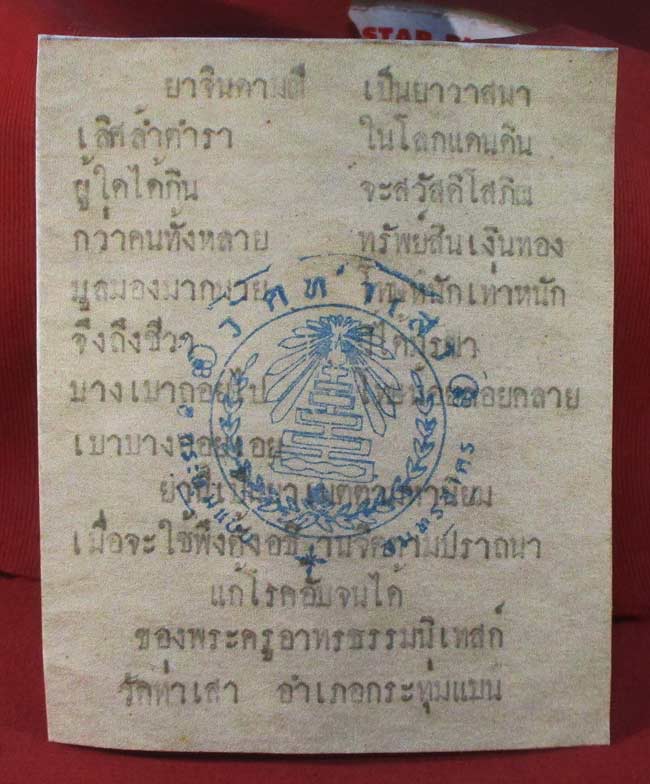 STAR
ยาจินดามณี เป็นยาวาสนา
เลิศล้ำตำรา ในโลกแดนดิน
ผู้ใดได้กิน จะสวัสดิโสภิณ
กว่าคนทั้งหลาย ทรัพย์สินเงินทอง
มูลมองมากมาย โทษหนักเท่าหนัก
จึ่งถึงชีวา
บางเบาถอยไป โทษน้อยค่อยคลาย
เบาบาง
ยานี้เป็นยาเมตตามหานิยม
เมื่อจะใช้พึงตั้งอธิฐานจิตตามปราถนา
แก้โรคอับจนได้
ของพระครูอาทรธรรมนิเทสก์
วัดท่าเสา อำเภอกระทุ่มแบน
วัดท่าเสา